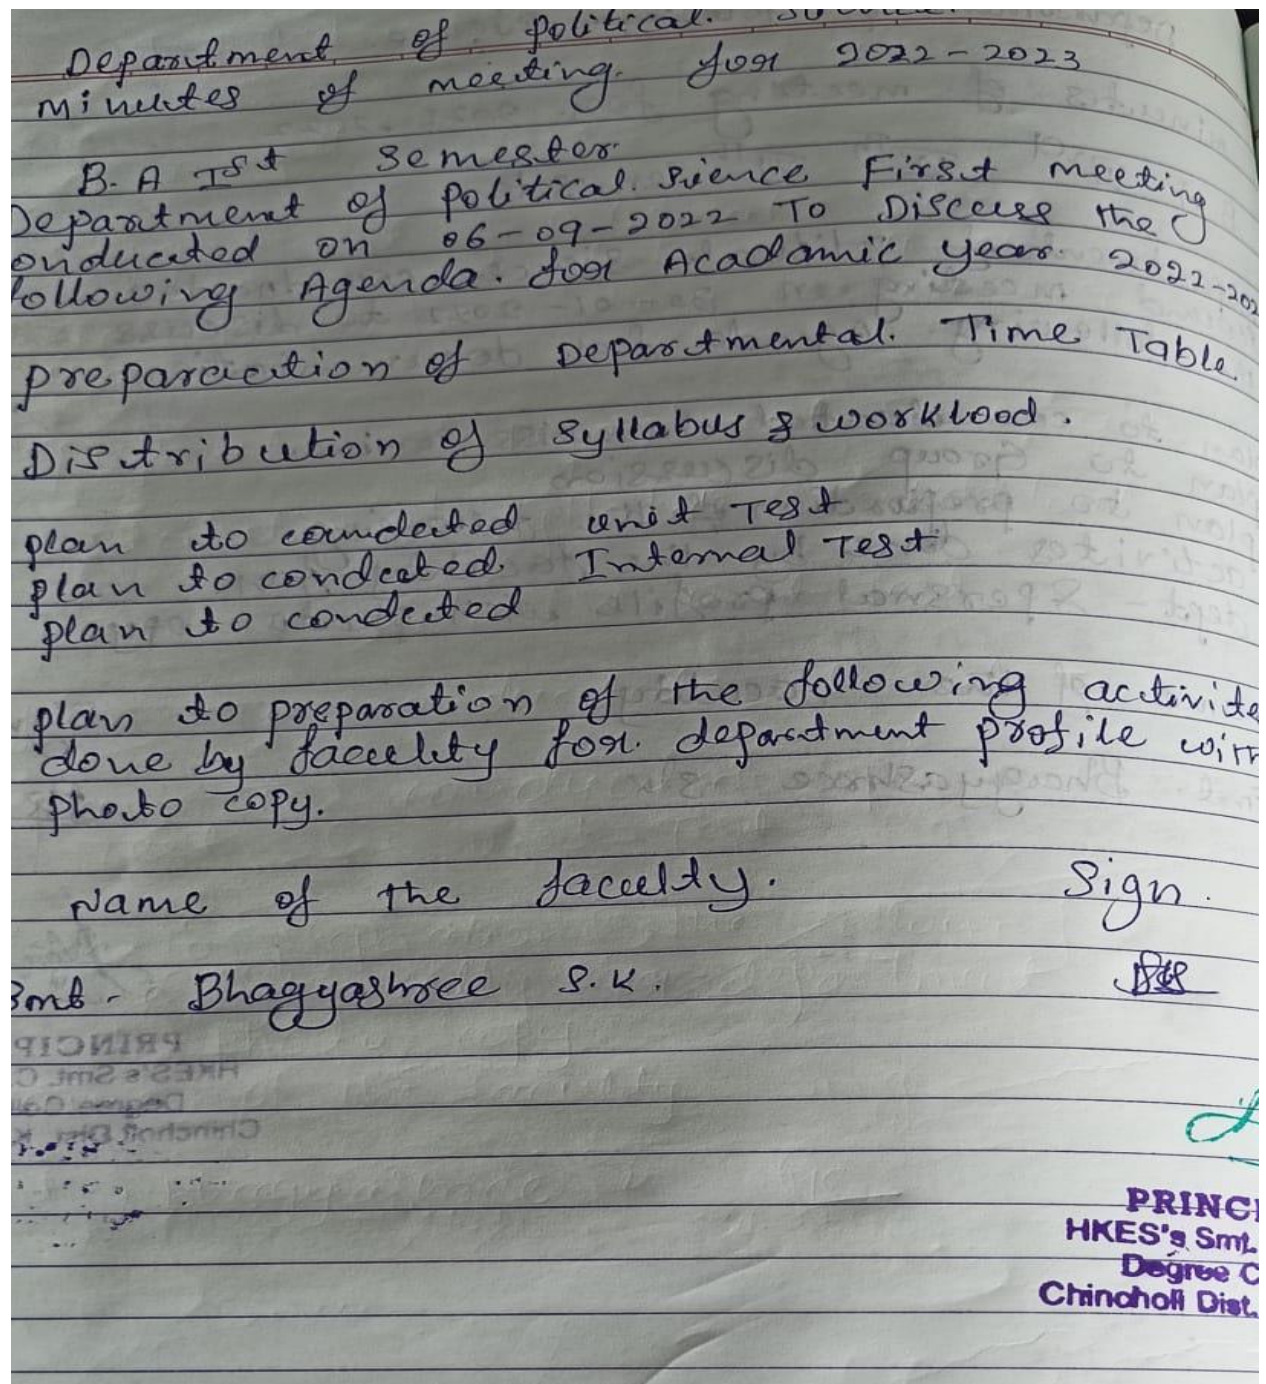 Department of political.
minutes of meeting. for 2022-2023
B.A Ist semester.
Department of political. sience First meeting
onducated on 06-09-2022 To Discuss the
following Agenda. for Acadamic year. 2022-202
preparaction of Departmental. Time Table.
Distribution of syllabus & workload.
plan to counducted unit Test
plan to condcated. Internal Test
plan to conducted
plan to preparation of the following activite
done by faculity for. department profile with
photo copy.
Name of the faculty. Sign.
Smt. Bhagyashree S.K.
PRINCI
HKES's Smt.
Degree C
Chincholi Dist.